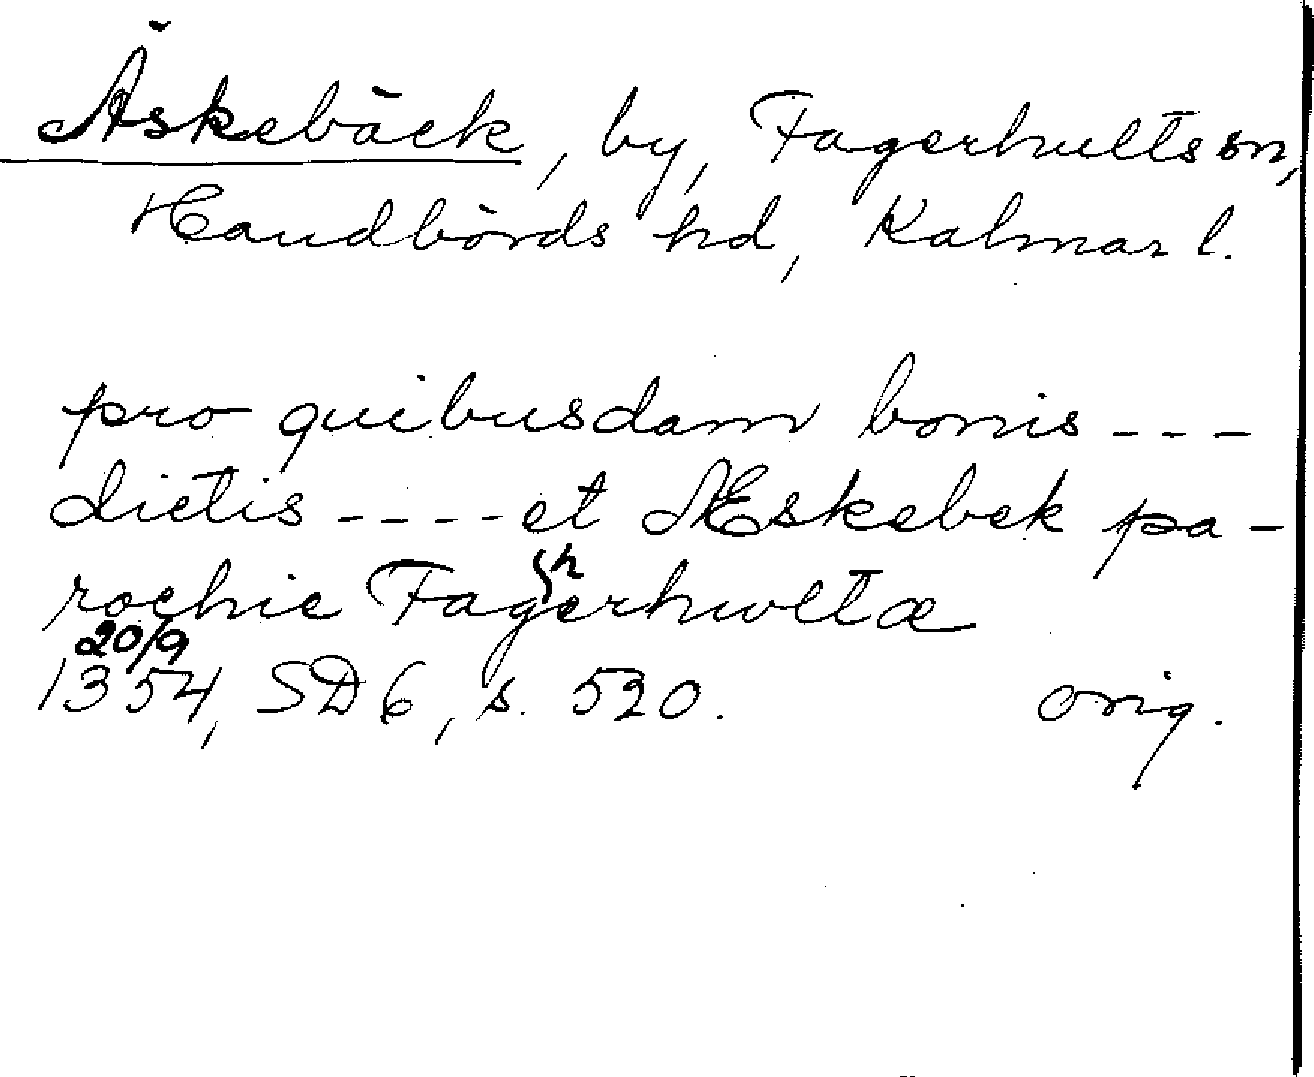 Äskebäck, by, Fagerhults sn,
Handbörds hd, Kalmar l.
pro quibusdam bonis ---
dictis ---- et Æskebek pa-
rochie Fagherhwltæ
20/9
1354, SD 6, s. 520. orig.